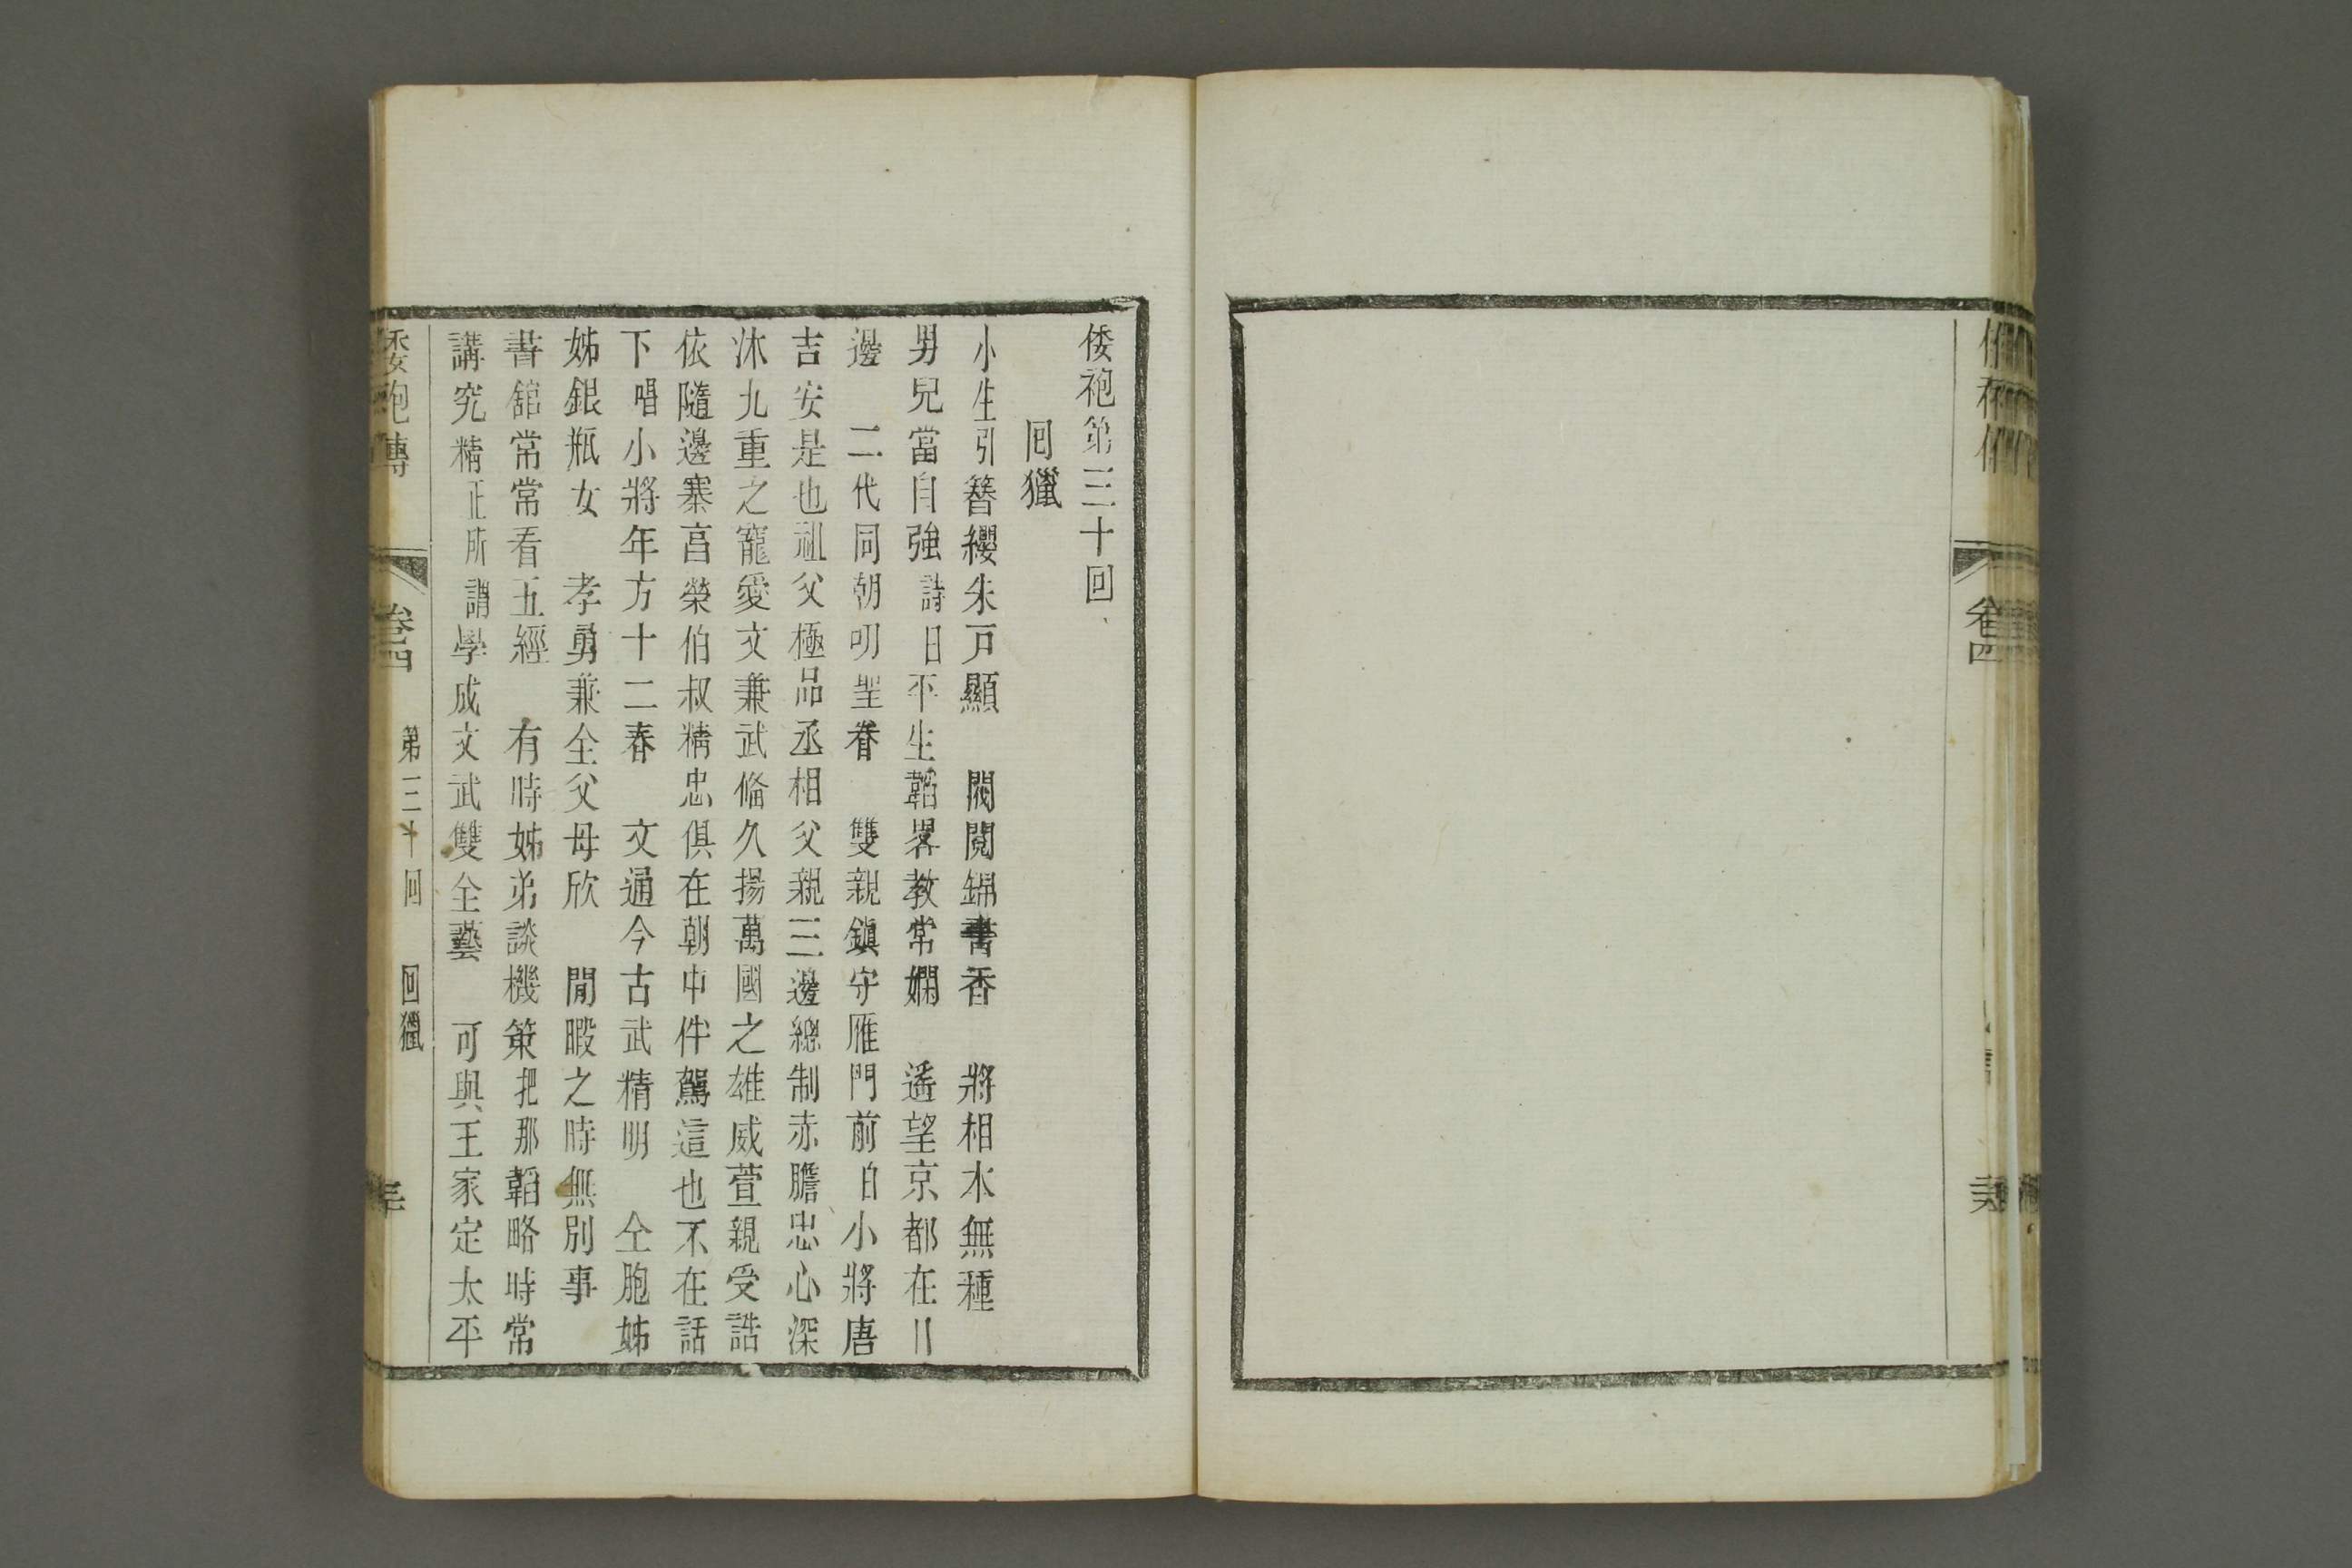 卷四
倭袍第三十回
回獵
小生引簪纓朱戸顯　閥閱錦書香　將相木無種
男兒當自強詩曰平生韜畧教常嫻　遙望京都在刂
邊　二代同朝叨聖眷　雙親鎮守雁門前白小將唐
吉安是也祖父極品丞相父親三邊總制赤膽忠心深
沐九重之寵愛文兼武偹久揚萬國之雄威萱親受誥
依隨邊寨宮榮伯叔精忠俱在朝中件駕這也不在話
下唱小將年方十二春　文通今古武精明　仝胞姊
姊銀瓶女　孝勇兼全父母欣　閒暇之時無別事
書舘常常看五經　有時姊弟談機策把那韜略時常
講究精正所謂學成文武雙全藝　可與王家定太平
倭袍傳　卷四　第三十回　回獵